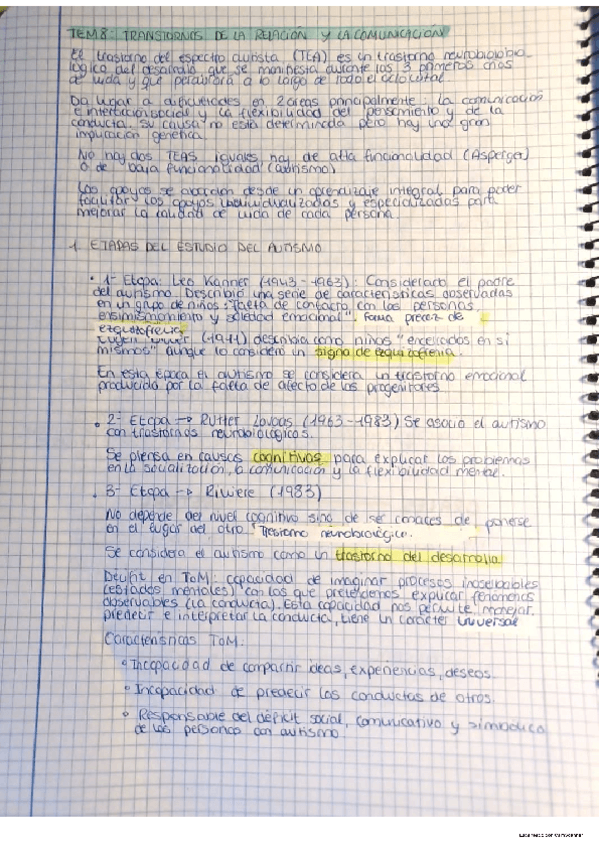 TEMA 8: TRANSTORNOS DE LA RELACIÓN Y LA COMUNICACIÓN
El trastorno del espectro autista (TEA) es un trastorno neurobio
lógico del desarrollo que se manifiesta durante los 3 primeros años
de vida y que perdurará a lo largo de todo el ciclo vital.
Da lugar a dificultades en 2 áreas principalmente: la comunicación
e interacción social y la flexibilidad del pensamiento y de la
conducta. Su causa no está determinada pero hay una gran
implicación genética.
No hay dos TEAS iguales hay de alta funcionalidad (Asperger)
o de baja funcionalidad (autismo)
Los apoyos se desde un aprendizaje integral para poder
facilitar los apoyos individualizados y especializados para
mejorar la calidad de vida de cada persona.
1. ETAPAS DEL ESTUDIO DEL AUTISMO
• 1ª Etapa: Leo Kanner (1943-1963): Considerado el padre
del autismo. Describió una serie de características observadas
en un grupo de niños: "falta de contacto con las personas,
ensimismamiento y soledad emocional". Forma precoz de
esquizofrenia
(1911) describía como niños "encerrados en sí
mismos" aunque lo consideró un signo de esquizofrenia.
En esta época el autismo se considera un trastorno emocional
producido por la falta de afecto de los progenitores
• 2ª Etapa → Rutter Lovaas (1963-1983) Se asoció el autismo
con trastornos neurobiológicos.
Se piensa en causas cognitivas para explicar los problemas
en la socialización, la comunicación y la flexibilidad mental.
• 3ª Etapa → Riviere (1983)
No depende del nivel cognitivo sino de ser capaces de ponerse
en el lugar del otro. Trastorno neurobiológico.
Se considera el autismo como un trastorno del desarrollo
Déficit en ToM: capacidad de imaginar procesos inobservables
(estados mentales) con los que pretendemos explicar fenómenos
observables (la conducta). Esta capacidad nos permite manejar,
predecir e interpretar la conducta, tiene un carácter universal
Características ToM:
° Incapacidad de compartir ideas, experiencias, deseos.
° Incapacidad de predecir las conductas de otros.
° Responsable del déficit social, comunicativo y simbólico
de las personas con autismo.